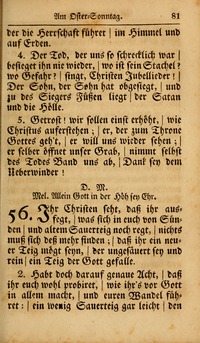 Am Oster-Sonntag. 81
der die Herrschaft führer | im Himmel und
auf Erden.
4. Der Tod, der uns so schrecklich war |
besieget ihn nie wieder, | wo ist sein Stachel?
wo Gefahr? | singt, Christen Jubellieder! |
Der Sohn, der Sohn hat obgesiegt, | und
zu des Siegers Füßen liegt | der Satan
und die Hölle.
5. Getrost! wir sollen einst erhöht, | wie
Christus auferstehen; | er, der zum Throne
Gottes geht, | er will uns wieder sehen; |
er selber öffnet unser Grab, | nimmt selbst
des Todes Band uns ab, | Dank sey dem
Ueberwinder!
D. M.
Mel. Allein Gott in der Höh sey Ehr.
56. Ihr Christen seht, daß ihr aus-
fegt, | was sich in euch von Sün-
den | und altem Sauerteig noch regt, | nichts
muß sich deß mehr finden; | daß ihr ein neu-
er Teig mögt seyn, | der ungesäuert sey und
rein | ein Teig der Gott gefalle.
2. Habt doch darauf genaue Acht, | daß
ihr euch wohl probiret, | wie ihr's vor Gott
in allem macht, | und euren Wandel füh-
ret: | ein wenig Sauerteig gar leicht | den